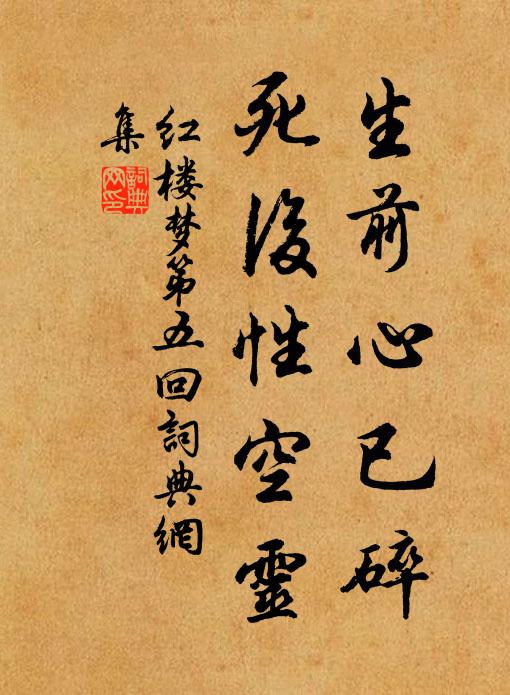 生前心已碎
死後性空靈
红楼梦第五回詞典網
集
詞典網印